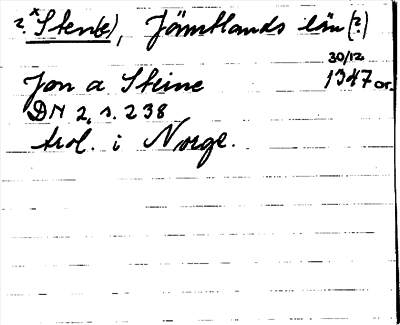 ?*Sten(e), Jämtlands län(?)
30/12
Jon a Steine 1347 or.
DN 2, s. 238
trol. i Norge.